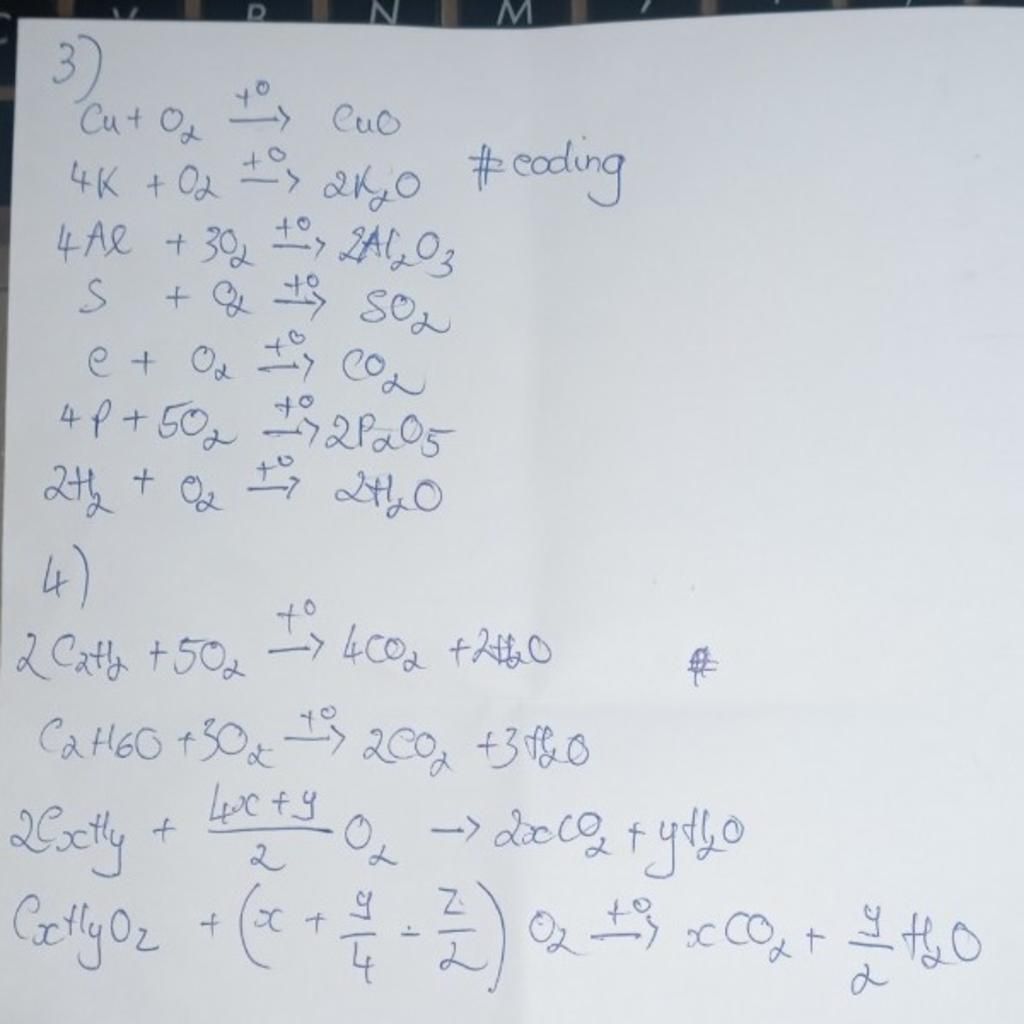 V B N M
3)
Cu + O₂ →(t°) CuO
4K + O₂ →(t°) 2K₂O #coding
4Al + 3O₂ →(t°) 2Al₂O₃
S + O₂ →(t°) SO₂
C + O₂ →(t°) CO₂
4P + 5O₂ →(t°) 2P₂O₅
2H₂ + O₂ →(t°) 2H₂O
4)
2C₂H₂ + 5O₂ →(t°) 4CO₂ + 2H₂O #
C₂H₆O + 3O₂ →(t°) 2CO₂ + 3H₂O
2CxHy + (4x + y)/2 O₂ → 2xCO₂ + yH₂O
CxHyOz + (x + y/4 - z/2) O₂ →(t°) xCO₂ + y/2 H₂O